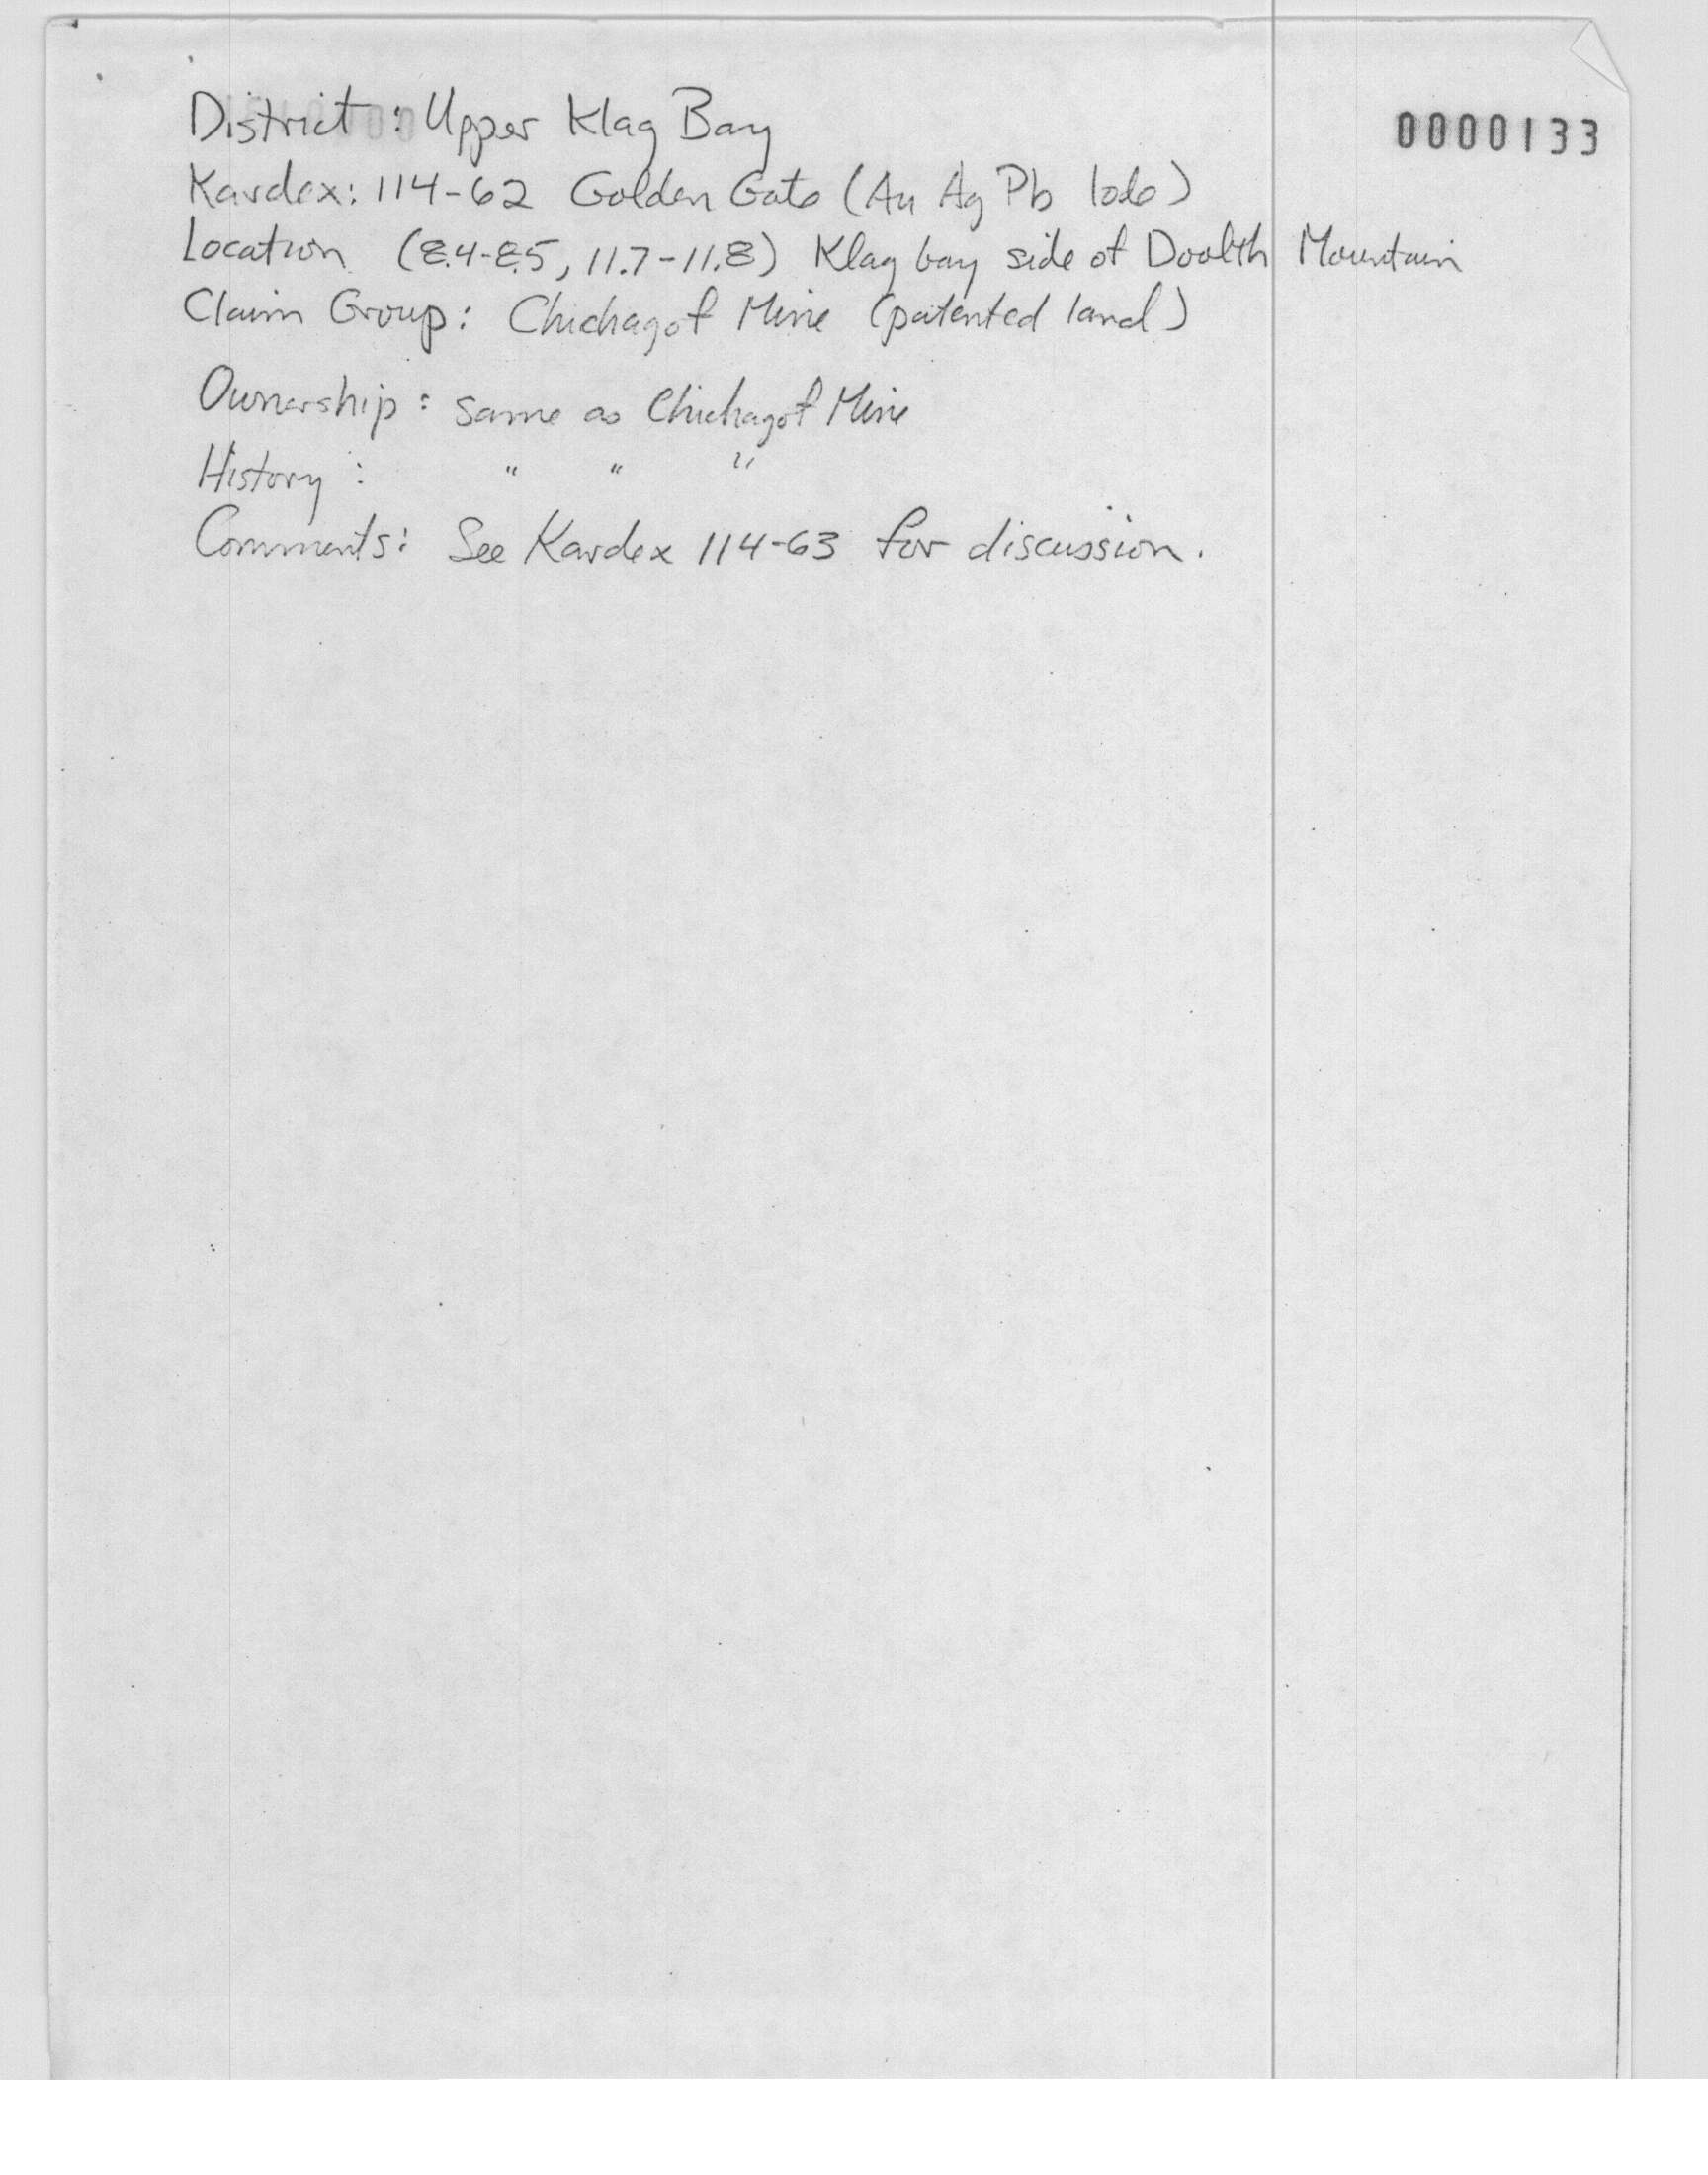 District : Upper Klag Bay
0000133
Kardex: 114-62 Golden Gate (Au Ag Pb lode)
Location (8.4-8.5, 11.7-11.8) Klag bay side of Doolth Mountain
Claim Group: Chichagof Mine (patented land)
Ownership : same as Chichagof Mine
History : " " "
Comments: See Kardex 114-63 for discussion.